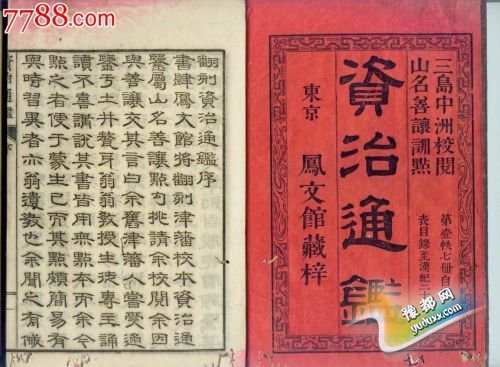 7788.com
三島中洲校閲
山名善讓訓點
第壹帙七冊自
表目錄至漢紀二十
資治通鑑
東京 鳳文館藏梓
翻刻資治通鑑序
書肆鳳文館將翻刻津藩校本資治通
鑒屬山名善讓點句挑請余校閱余因
與善讓交其言曰余舊津藩人嘗受通
鑒于土井聱牙翁翁教授生徒專主誦
讀不喜講說其書皆用無點本而余今
點之者便于蒙生已而其點頗簡易有
與時習異者亦翁遺教也余聞之有慨
資治通鑑 序
豫都网
yuduxx.com